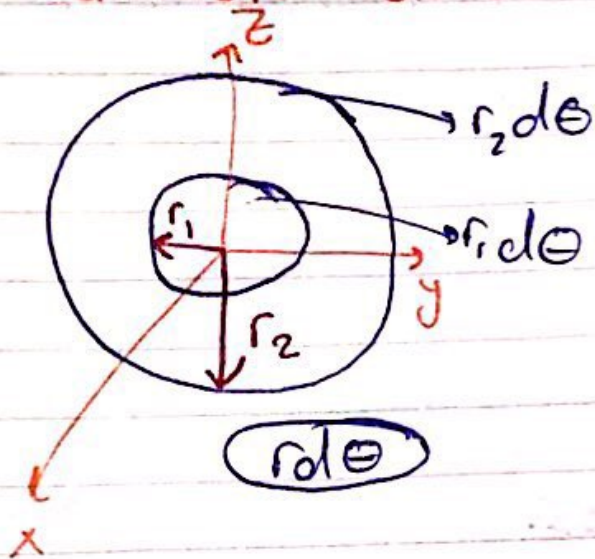 z
r₂dθ
r₁
r₁dθ
y
r₂
rdθ
x